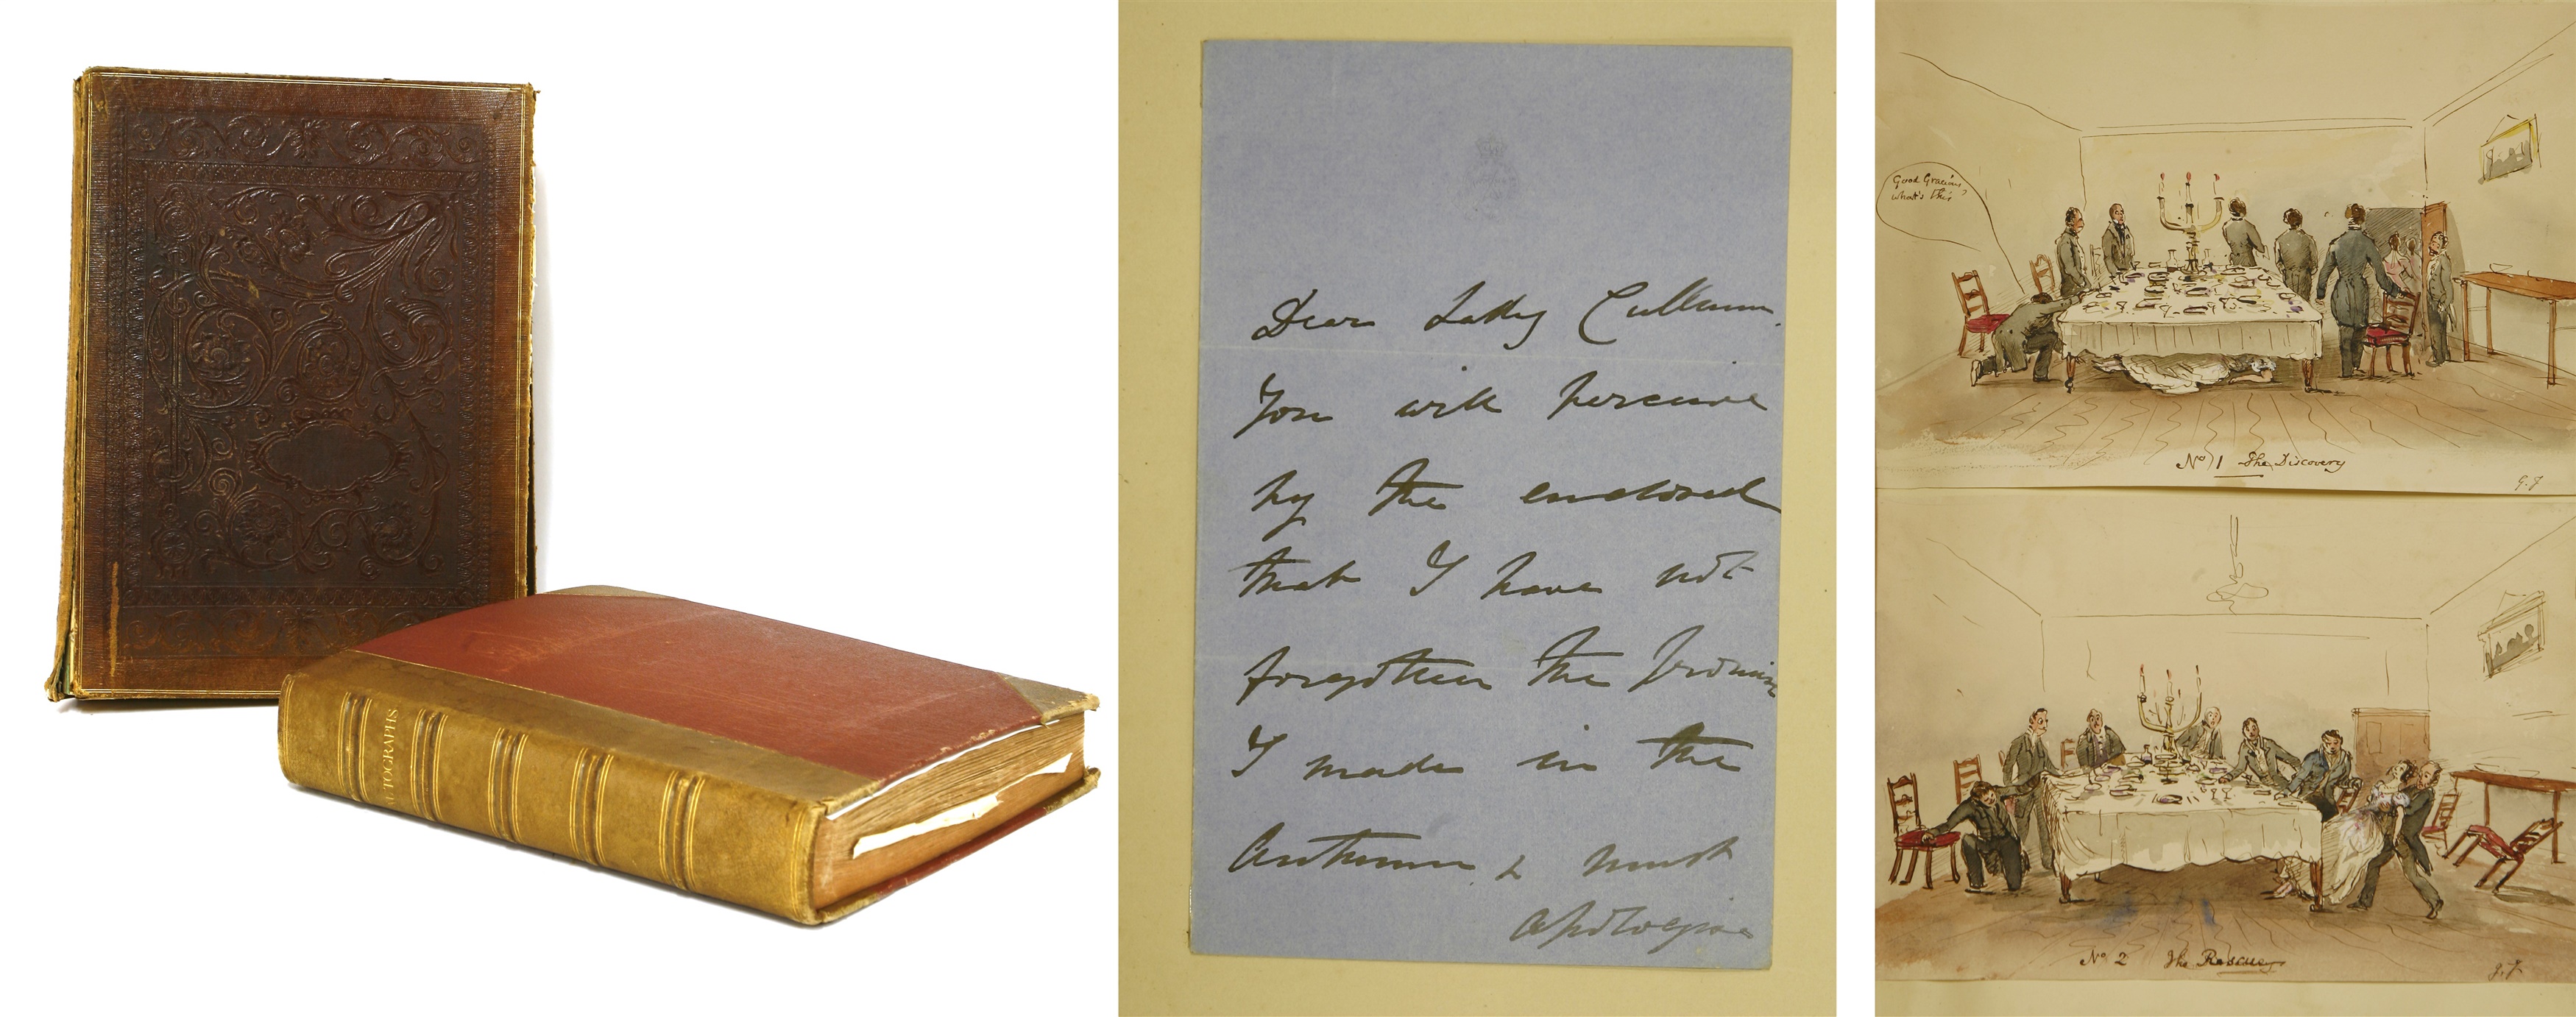 AUTOGRAPHS
Dear Lady Cullum.
You will perceive
by the enclosed
that I have not
forgotten the promise
I made in the
Autumn & must
apologise
Good Gracious
what's this?
No 1 The Discovery
G. J
No 2 The Rescue
G. J.